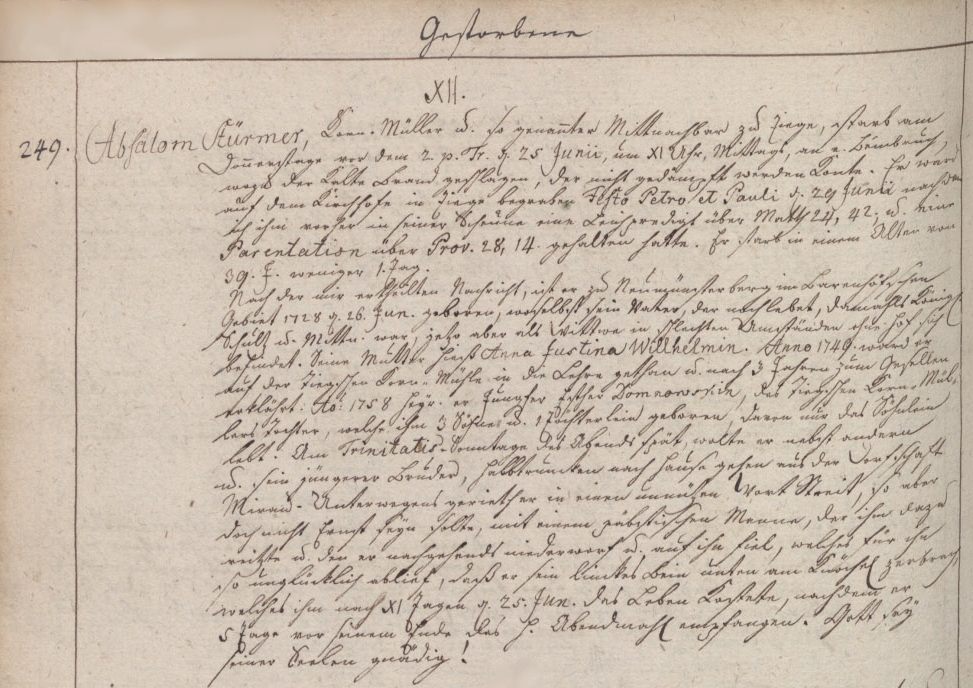 Gestorbene
XII.
249. Absalom Stürmer, Korn-Müller u. so genannter Mittnachbar zu Ziege, starb am
Donnerstage vor dem 2. p. Tr. d. 25 Junii, um XI Uhr, Mittags, an e. Beinbruch,
wozu der Kalte Brand geschlagen, der nicht gedämpft werden konte. Er ward
auf dem Kirchhofe in Ziege begraben Festo Petro et Pauli d. 29 Junii nachdem
ich ihm vorher in seiner Scheune eine Leichpredigt über Matth 24, 42. u. eine
Parentation über Prov. 28, 14. gehalten hatte. Er starb in einem Alter von
39. J. weniger 1. Tag.
Nach der mir ertheilten Nachricht, ist er zu Neumünsterberg im Barenhöfschen
Gebiet 1728 d. 26. Jun. geboren, woselbst sein Vater, der noch lebet, damahls Königl.
Schultz u. Mittn. war, jetzo aber als Wittwer in schlechten Umständen ohne Hof sich
befindet. Seine Mutter hiess Anna Justina Willhelmin. Anno 1749. ward er
auf der Ziegschen Korn-Mühle in die Lehre gethan u. nach 3 Jahren zum Gesellen
erklährt. Ao: 1758 heyr. er Jungfer Esther Domnowskin, des Ziegschen Korn-Mül-
lers Tochter, welche ihm 3 Söhne u. 1 Töchterlein geboren, davon nur das Söhnlein
lebt. Am Trinitatis-Sonntage des Abends spät, wolte er nebst andern
u. sein jüngerer Bruder, halbtruncken nach Hause gehen aus der Dorfschaft
Mirau. Unterwegens geriethe er in einen unnützen Wort Streit, so aber
doch nicht Ernst seyn solte, mit einem päbstischen Manne, der ihn dazu
reitzte u. den er nachgehends niederworf u. auf ihn fiel, welches für ihn
so unglücklich ablief, daß er sein linckes Bein unten am Knöchel zerbrach,
welches ihm nach XI Tagen d. 25. Jun. das Leben kostete, nachdem er
5 Tage vor seinem Ende das H. Abendmahl empfangen. Gott sey
seiner Seelen gnädig!